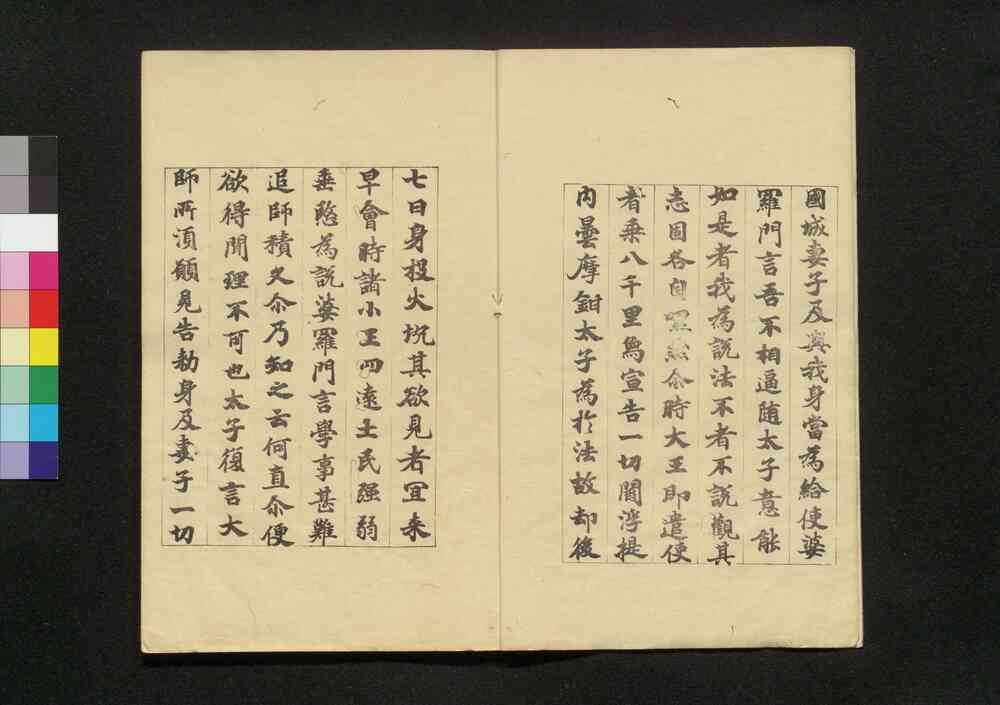 國城妻子及與我身當為給使婆
羅門言吾不相逼随太子意能
如是者我為説法不者不説觀其
志固各自默然尒時大王即遣使
者乗八千里象宣告一切閻浮提
内曇摩鉗太子為於法故却後
七日身投火坑其欲見者冝来
早會時諸小王四遠士民强弱
垂愍為説婆羅門言學事甚難
追師積久尒乃知之云何直尒便
欲得聞理不可也太子復言大
師所湏願見告勅身及妻子一切